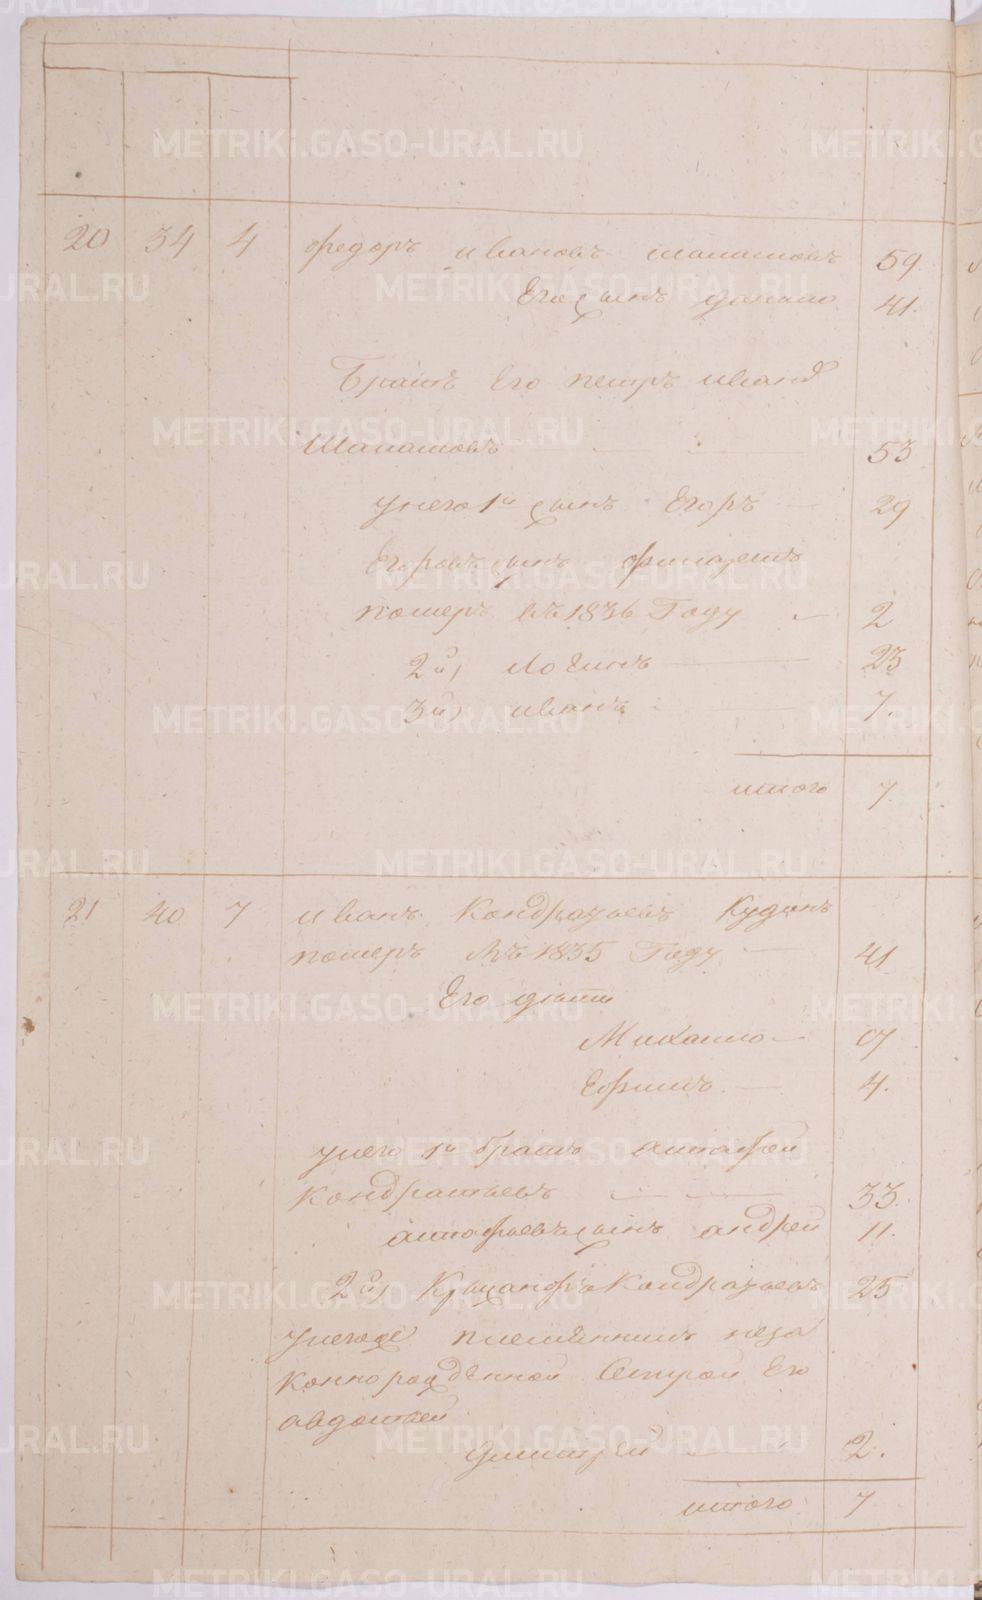 20 34 4 Федоръ Ивановъ Шапашовъ 59
Его сынъ Данило 41.
Братъ Его петръ иванов
Шапашовъ 53
унего 1й сынъ Егоръ 29
Егоровъ сынъ
померъ въ 1836 Году 2
2й, Логинъ 23
3й, иванъ 7.
итого 7
21 40 7 иванъ Кондратьевъ Кудинъ
померъ въ 1835 Году 41
Его дѣти
Михаило 17
Ефимъ 4.
унего 1й братъ Астафей
Кондратьевъ 33.
Астафьевъ сынъ андрей 11.
2й, Крысанфъ Кондратьевъ 25
унегоже племянникъ неза
коннорожденной Сестрой Его
авдотьей
Дмитрей 2.
итого 7
METRIKI.GASO-URAL.RU